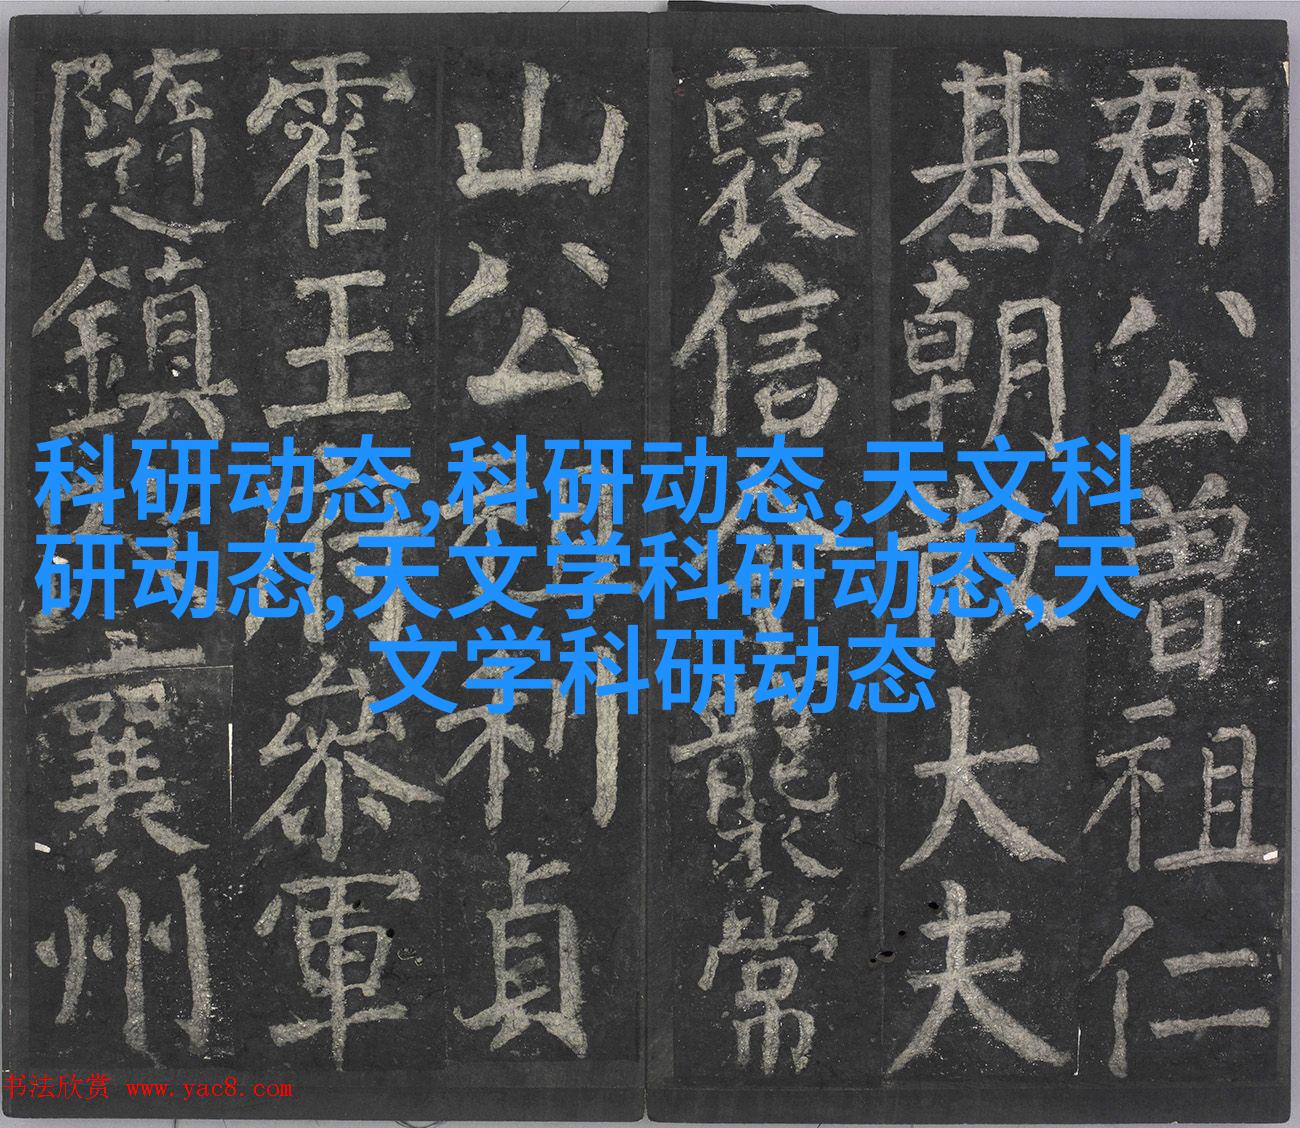 郡公曾祖仁
基朝散大夫
襃信令襲常
山公利貞
霍王府參軍
隨鎮襄州
科研动态,科研动态,天文科
研动态,天文学科研动态,天
文学科研动态
书法欣赏 www.yac8.com